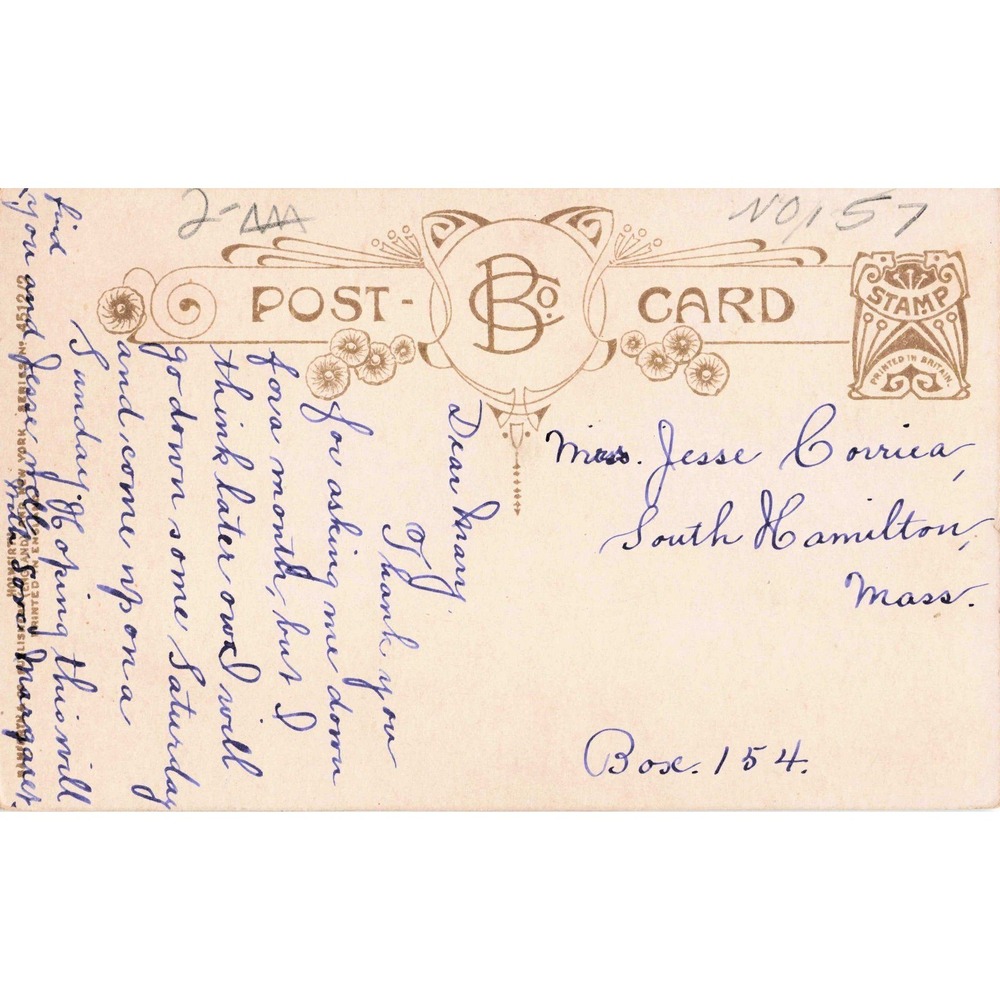 2-AAA
NO, 157
POST-CARD
BCo.
STAMP
PRINTED IN BRITAIN.
Mrs. Jesse Corriea,
South Hamilton,
Mass.
Box. 154.
Dear Mary.
Thank you
for asking me down
for a month, but I
think later on I will
go down some Saturday
and come up on a
Sunday. Hoping this will
find
you and Jesse well
Margaret.
PRINTED IN ENG
NEW YORK. SERIES No. 451242